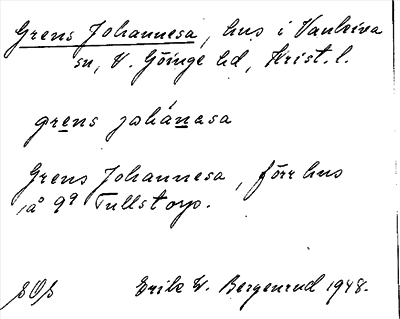 Grens Johannesa, hus i Vankiva
sn, V. Göinge hd, Krist. l.
grens johánasa
Grens Johannesa, förr hus
på gd Tullstorp.
SOS Erik W. Bergenrud 1948.